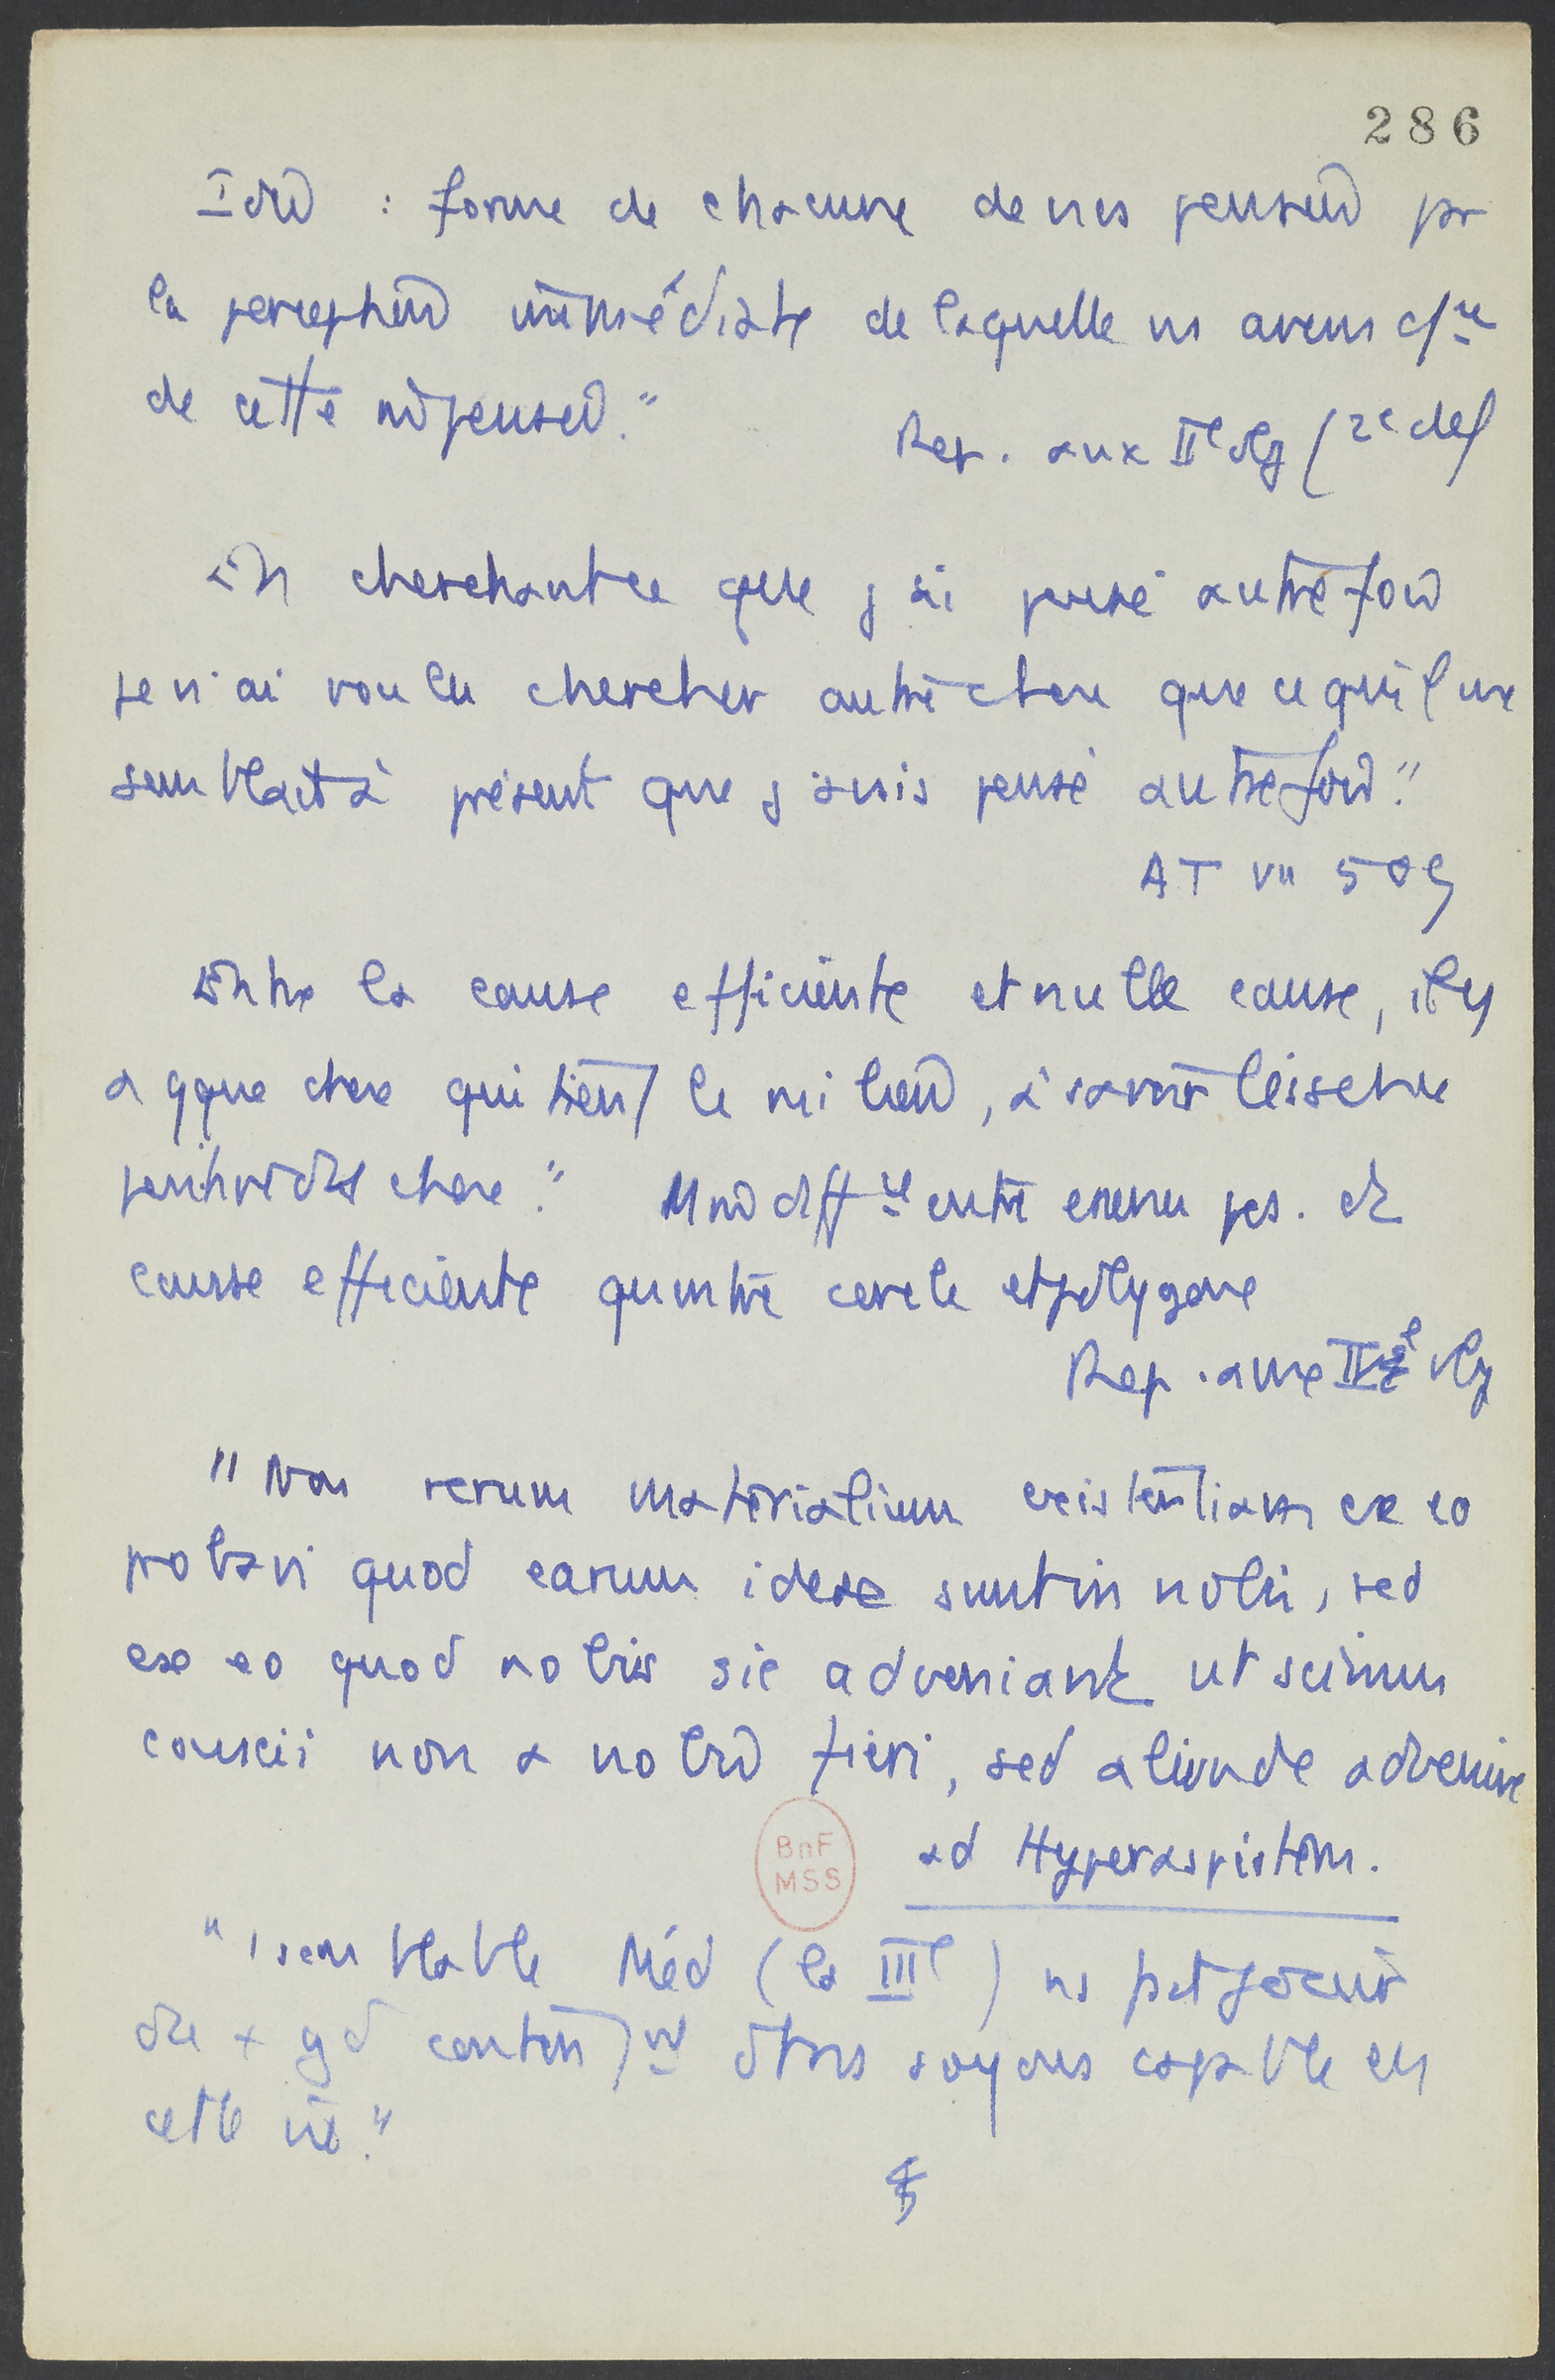 286
Idée : forme de chacune de nos pensées pr
la perception immédiate de laquelle ns avons c/ce
de cette m̂ pensée."
Rep. aux IIe Obj (2e def
En cherchant ce que j'ai pensé autrefois
je n'ai voulu chercher autre chose que ce qu'il me
semblait à présent que j'avais pensé autrefois."
AT VII 509
Entre la cause efficiente et nulle cause, il y
a qque chose qui tient le milieu, à savoir l'essence
positive d'1 chose." M̂ diff ce entre essence pos. et
cause efficiente qu'entre cercle et polygone
Rep. aux IVe Obj
"Non rerum materialium existentiam ex eo
probavi quod earum ideae sunt in nobis, sed
ex eo quod nobis sic adveniant ut simus
conscii non a nobis fieri, sed aliunde advenire
ad Hyperaspistem.
"1 semblable Méd (la IIIe) ns fait jouir
du + gd content/nt dt ns soyons capable en
cette vie."
BnF
MSS